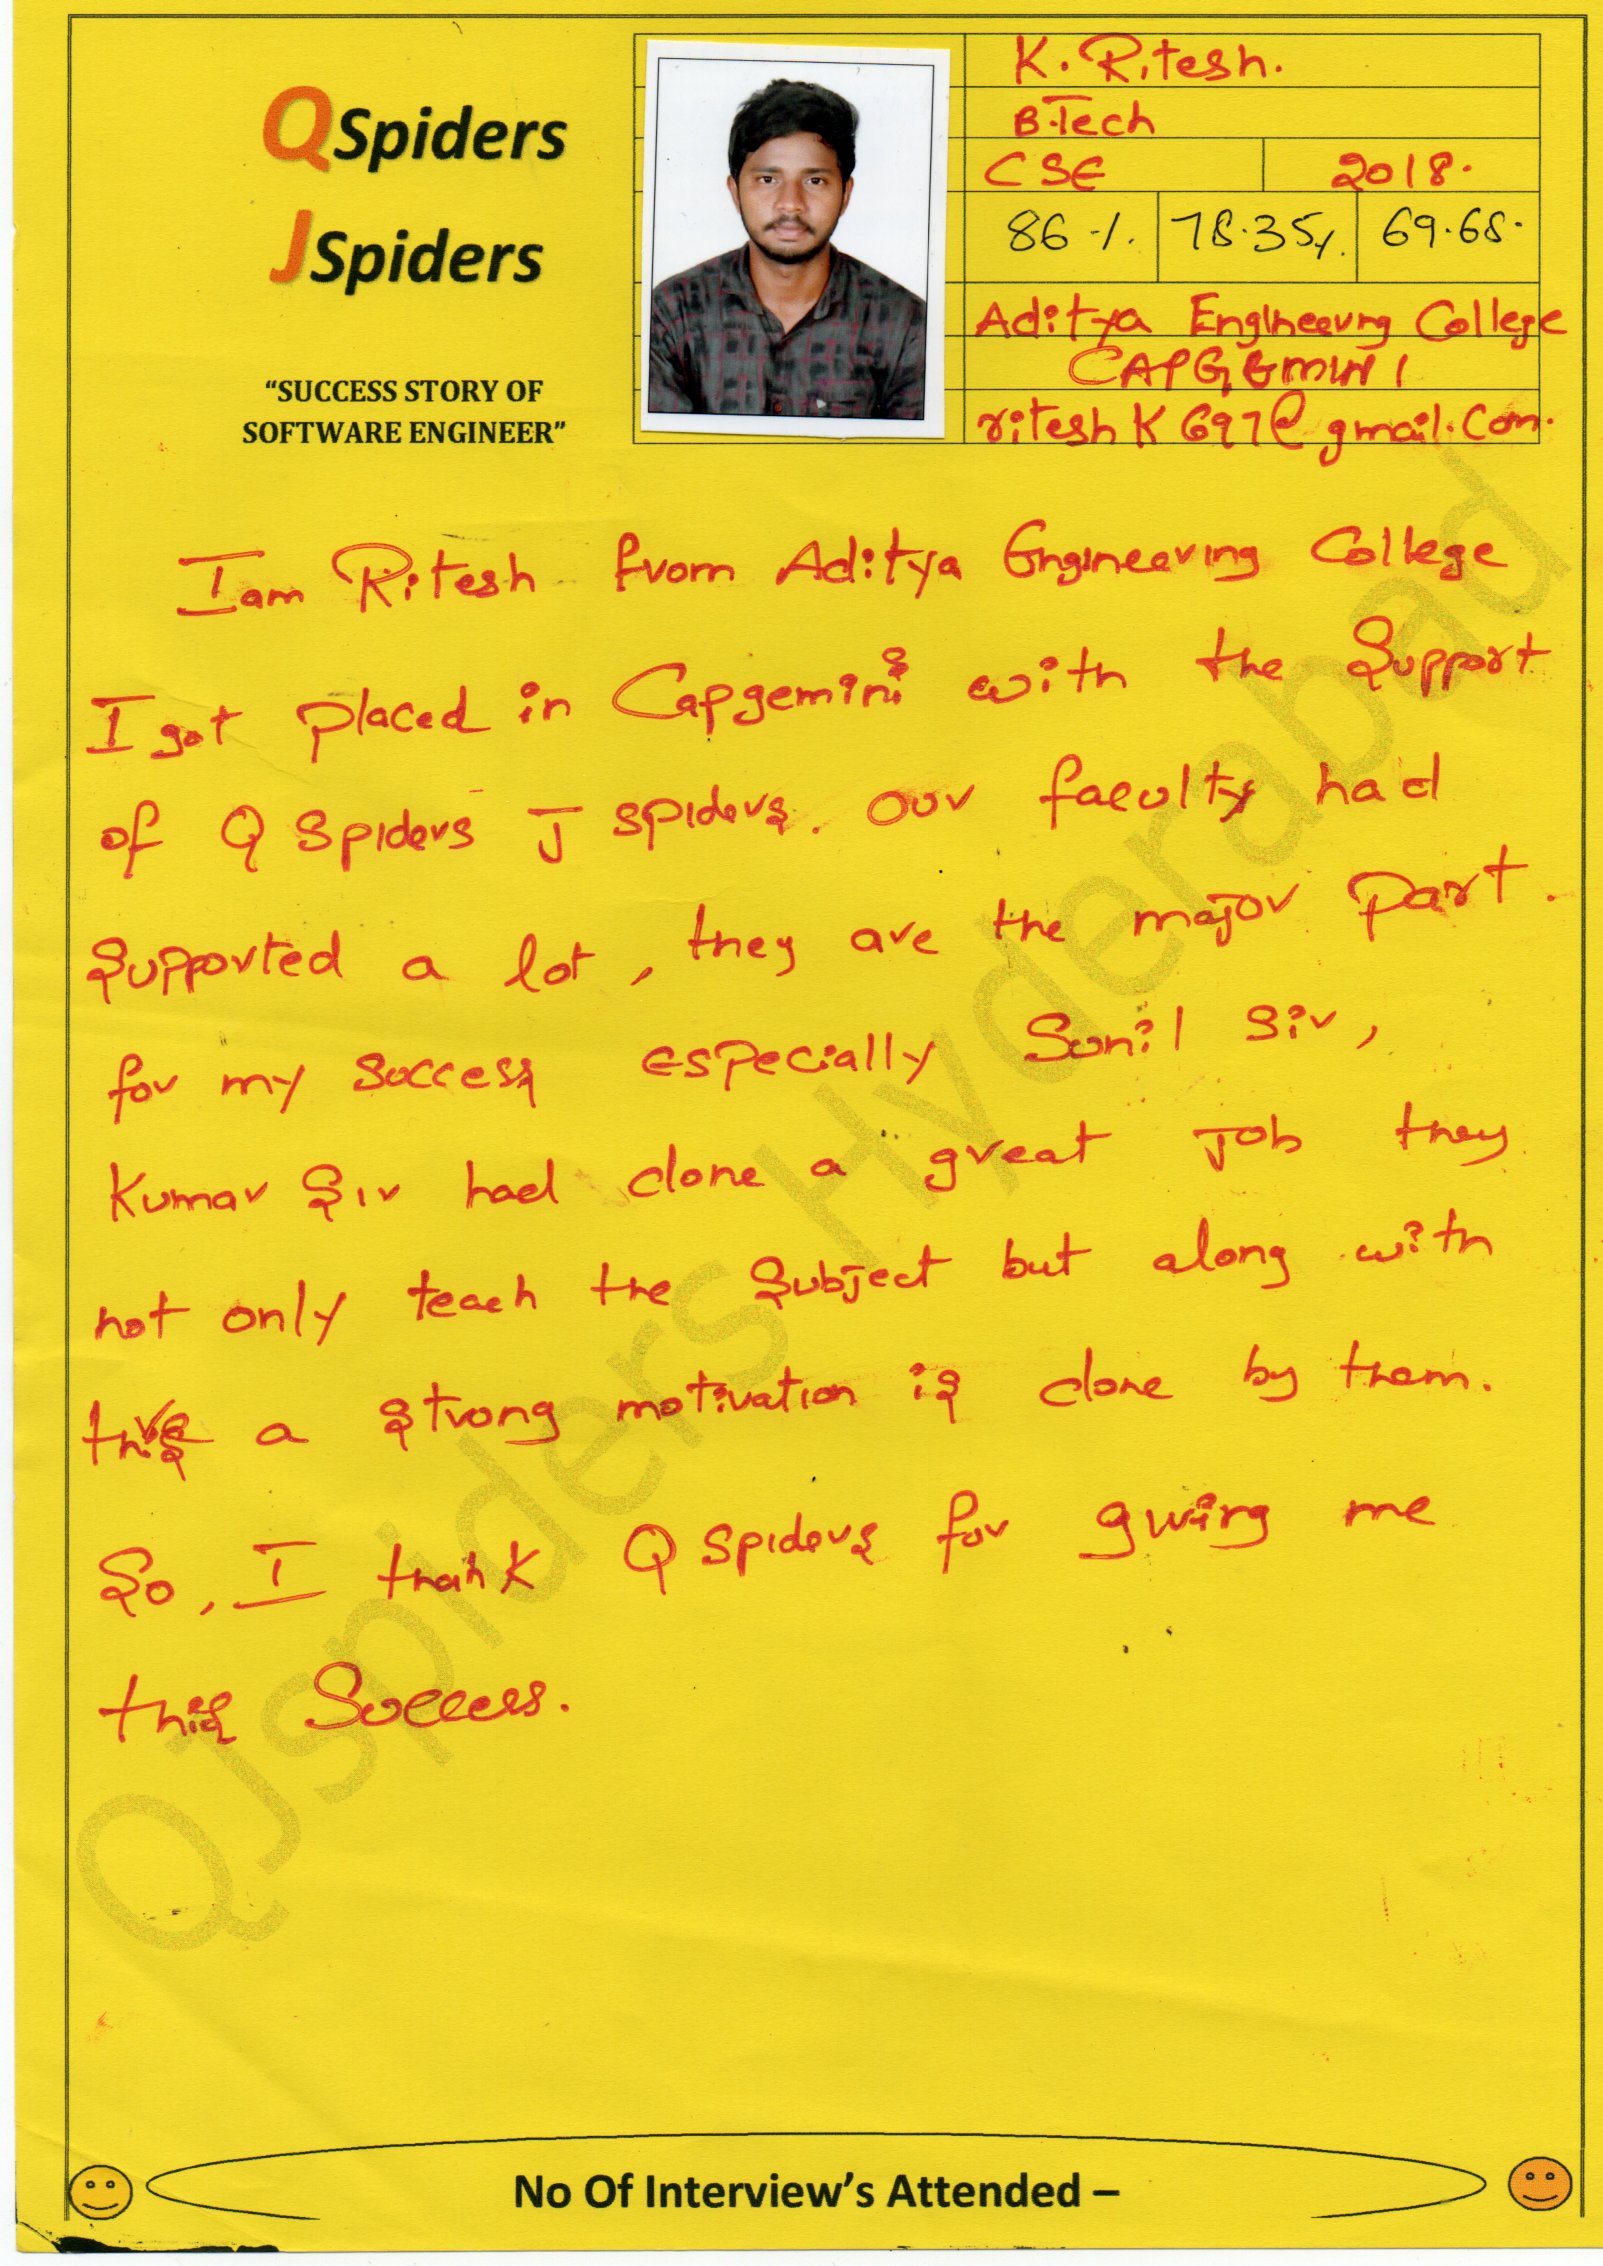 QSpiders
JSpiders
“SUCCESS STORY OF
SOFTWARE ENGINEER”
K. Ritesh.
B.Tech
CSE 2018.
86 %. 78.35%. 69.68.
Aditya Engineering College
CAPGEMINI
riteshk697@gmail.com.
I am Ritesh from Aditya Engineering College
I got placed in Capgemini with the Support
of Q Spiders J spiders. our faculty had
Supported a lot, they are the major part.
for my success especially Sunil sir,
Kumar Sir had done a great Job they
not only teach the Subject but along with
a strong motivation is done by them.
So, I thank Q spiders for giving me
this Success.
QJspiders Hyderabad
No Of Interview’s Attended –